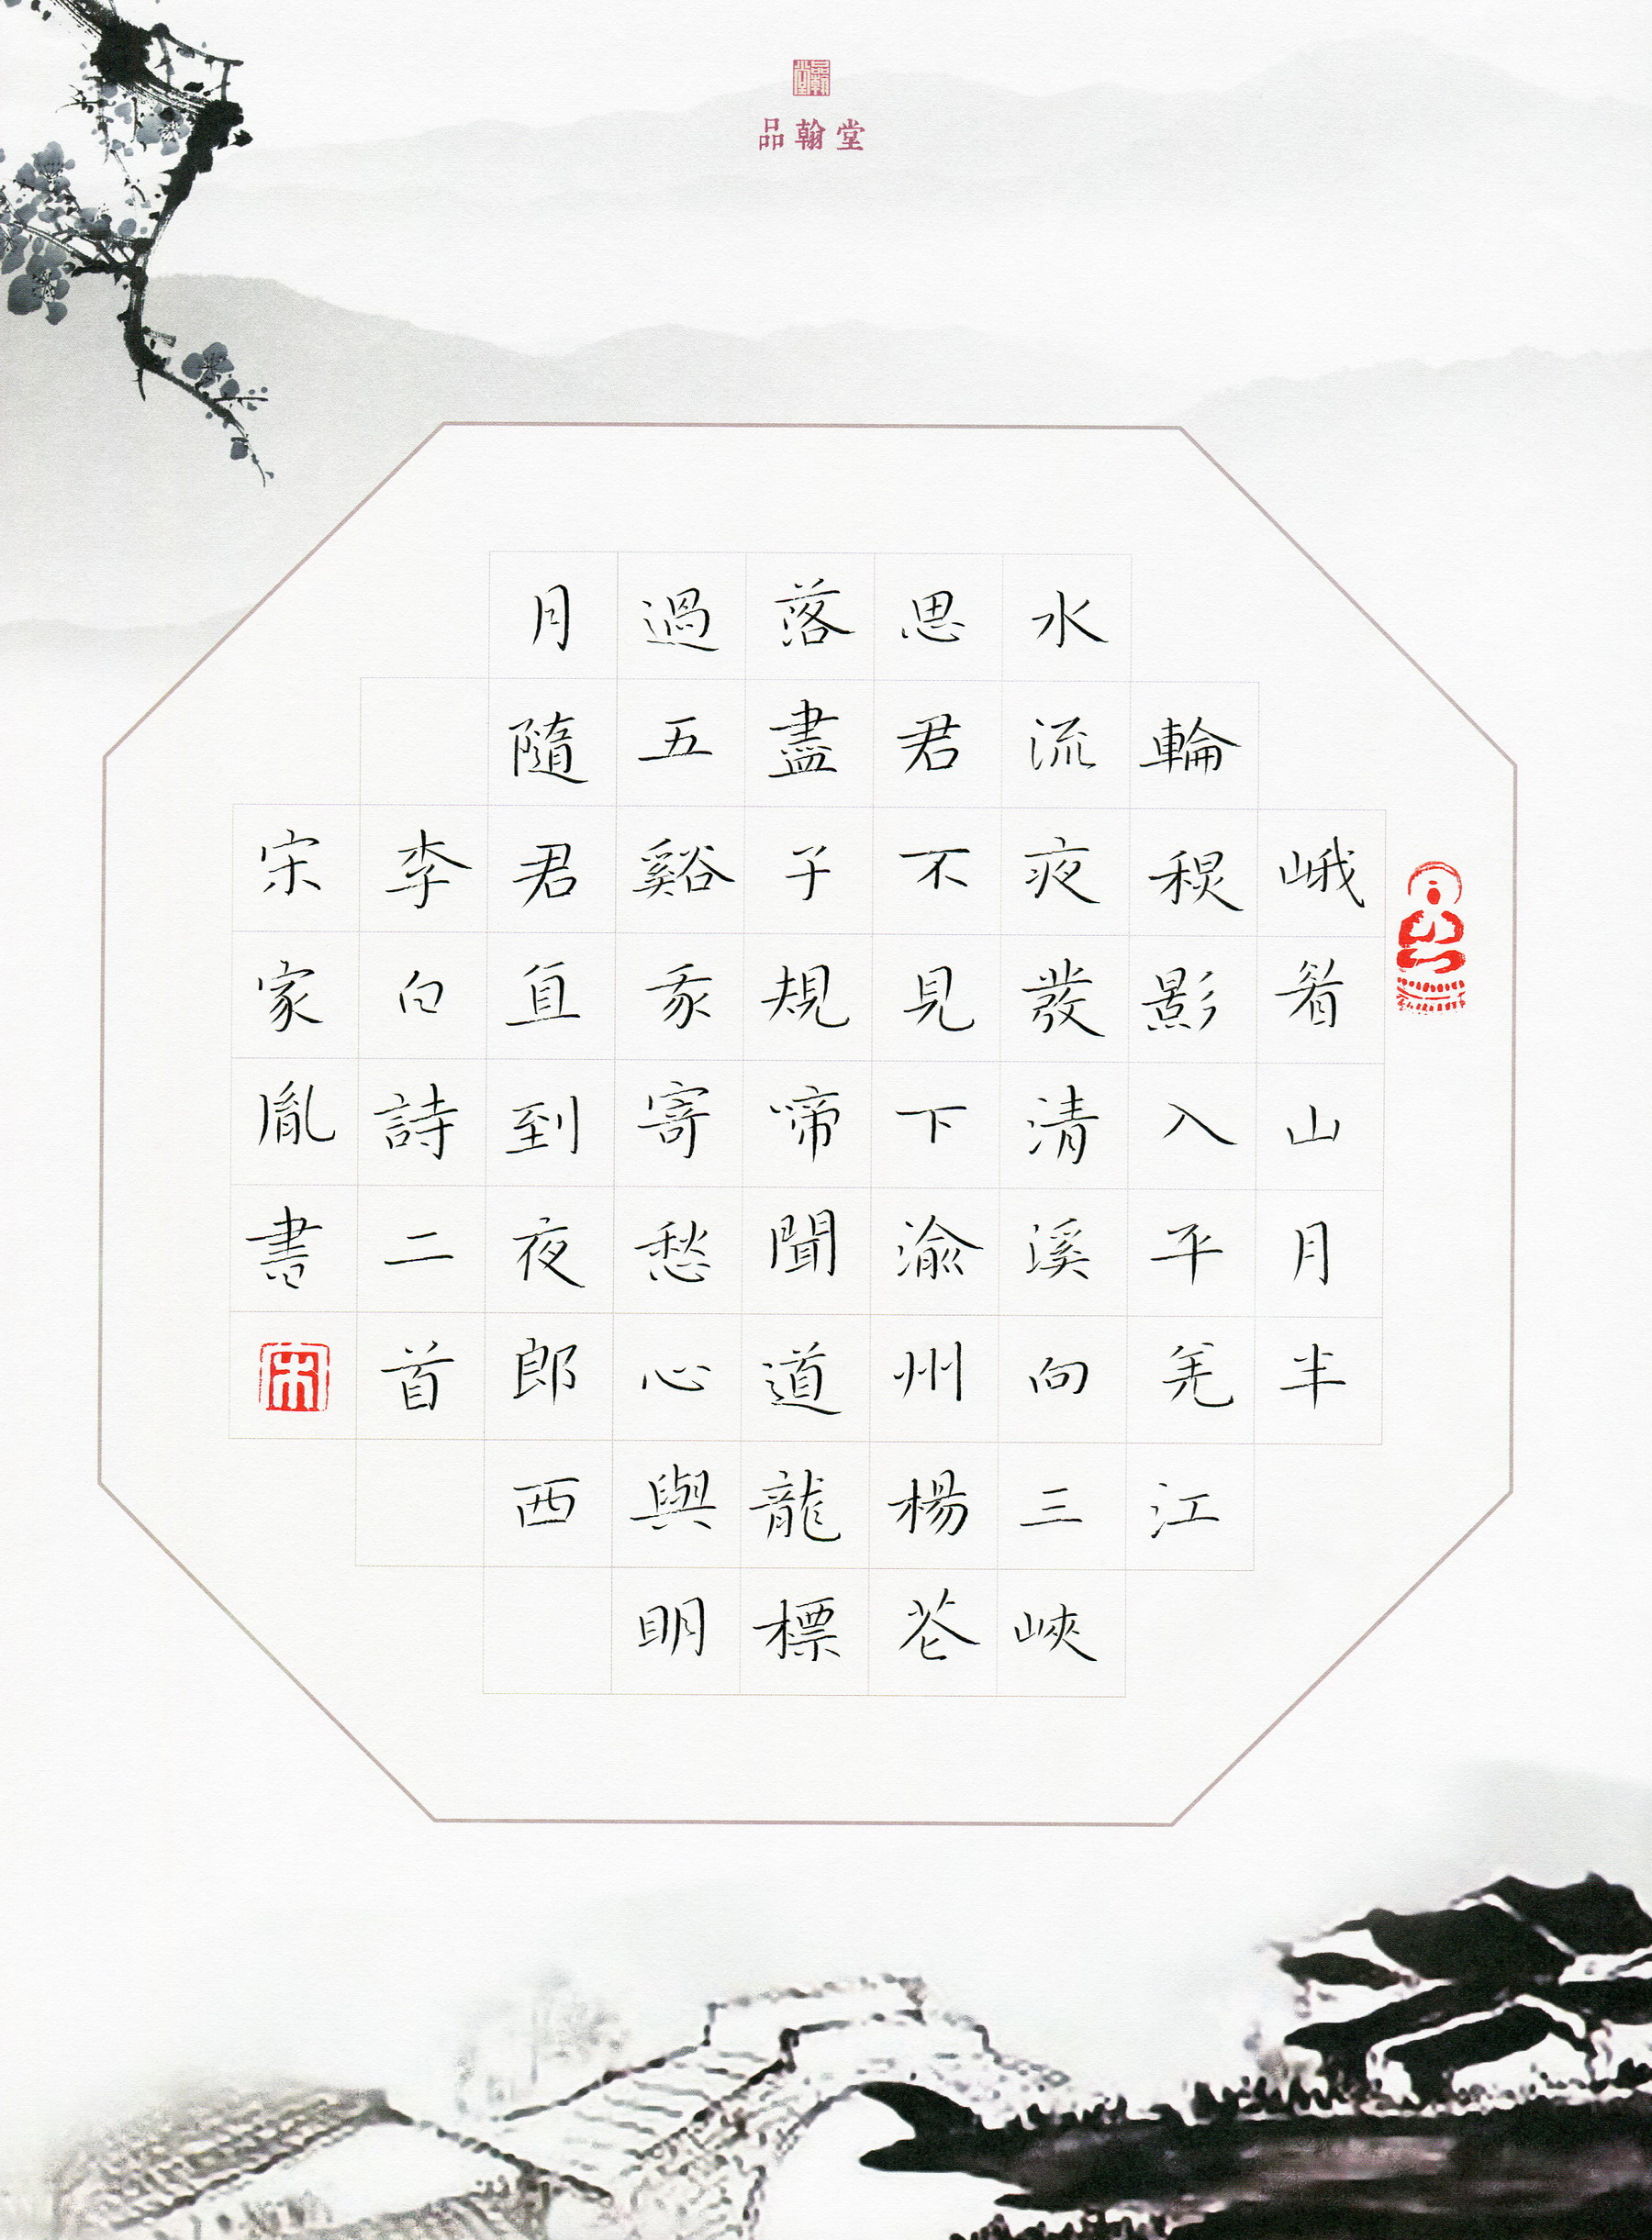 品翰堂
品翰堂
峨眉山月半
輪秋影入平羌江
水流夜發清溪向三峽
思君不見下渝州楊花
落盡子規啼聞道龍標
過五谿我寄愁心與明
月隨君直到夜郎西
李白詩二首
宋家胤書
宋